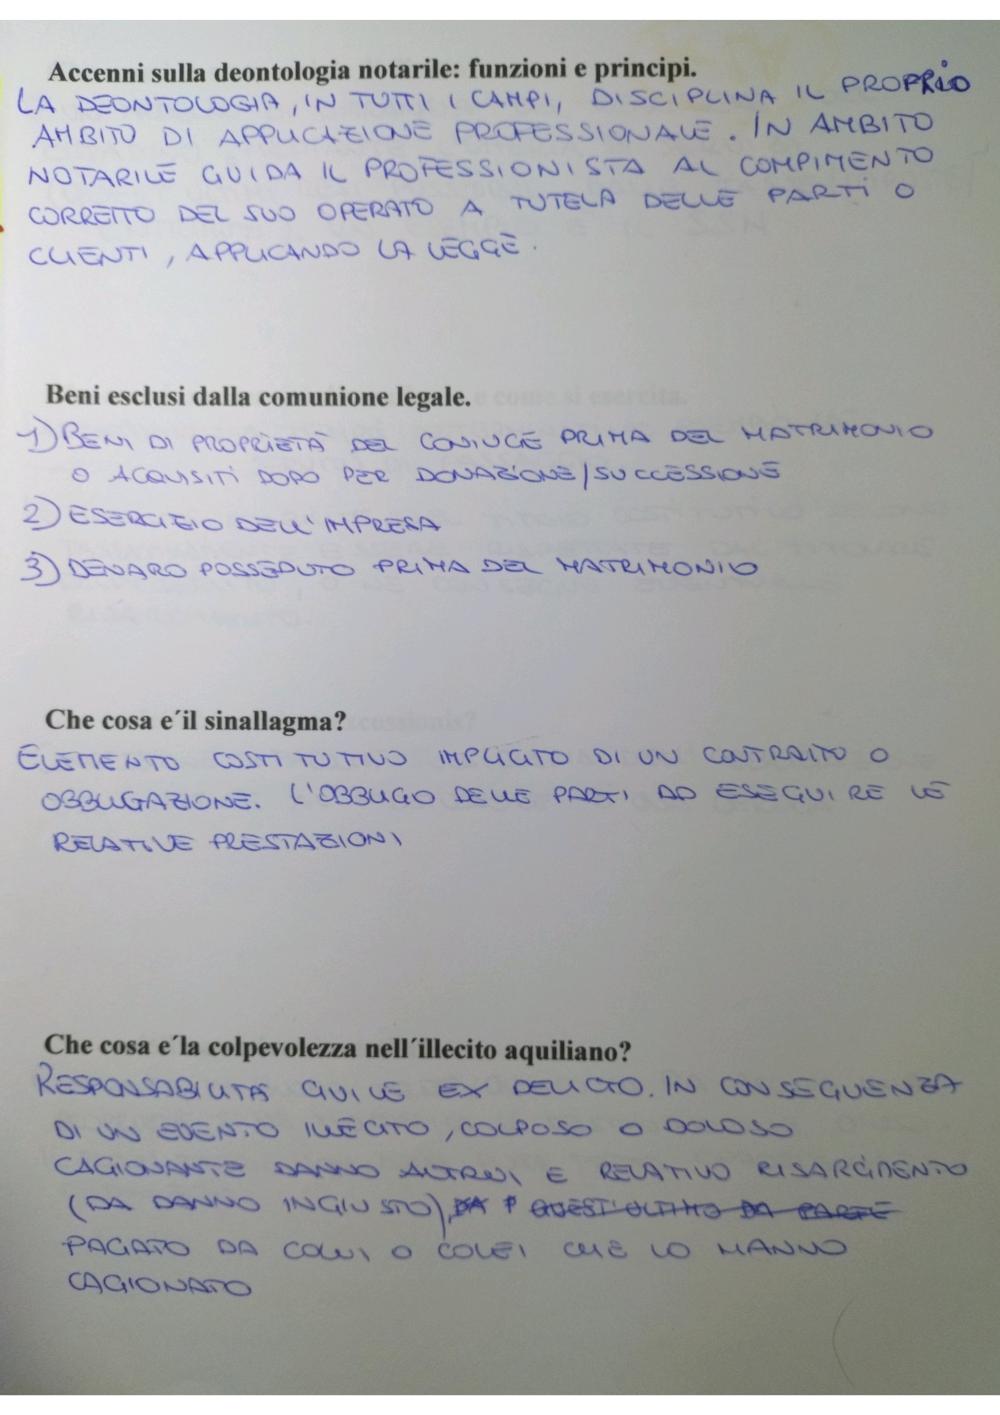 Accenni sulla deontologia notarile: funzioni e principi.
LA DEONTOLOGIA, IN TUTTI I CAMPI, DISCIPLINA IL PROPRIO
AMBITO DI APPLICAZIONE PROFESSIONALE. IN AMBITO
NOTARILE GUIDA IL PROFESSIONISTA AL COMPIMENTO
CORRETTO DEL SUO OPERATO A TUTELA DELLE PARTI O
CLIENTI, APPLICANDO LA LEGGE.
Beni esclusi dalla comunione legale.
1) BENI DI PROPRIETÀ DEL CONIUGE PRIMA DEL MATRIMONIO
O ACQUISITI DOPO PER DONAZIONE/SUCCESSIONE
2) ESERCIZIO DELL'IMPRESA
3) DENARO POSSEDUTO PRIMA DEL MATRIMONIO
Che cosa e´il sinallagma?
ELEMENTO COSTITUTIVO IMPLICITO DI UN CONTRATTO O
OBBLIGAZIONE. L'OBBLIGO DELLE PARTI AD ESEGUIRE LE
RELATIVE PRESTAZIONI
Che cosa e´la colpevolezza nell´illecito aquiliano?
RESPONSABILITÀ CIVILE EX DELICTO. IN CONSEGUENZA
DI UN EVENTO ILLECITO, COLPOSO O DOLOSO
CAGIONANTE DANNO ALTRUI E RELATIVO RISARCIMENTO
(DA DANNO INGIUSTO), QUEST'ULTIMO DA PARTE
PAGATO DA COLUI O COLEI CHE LO HANNO
CAGIONATO